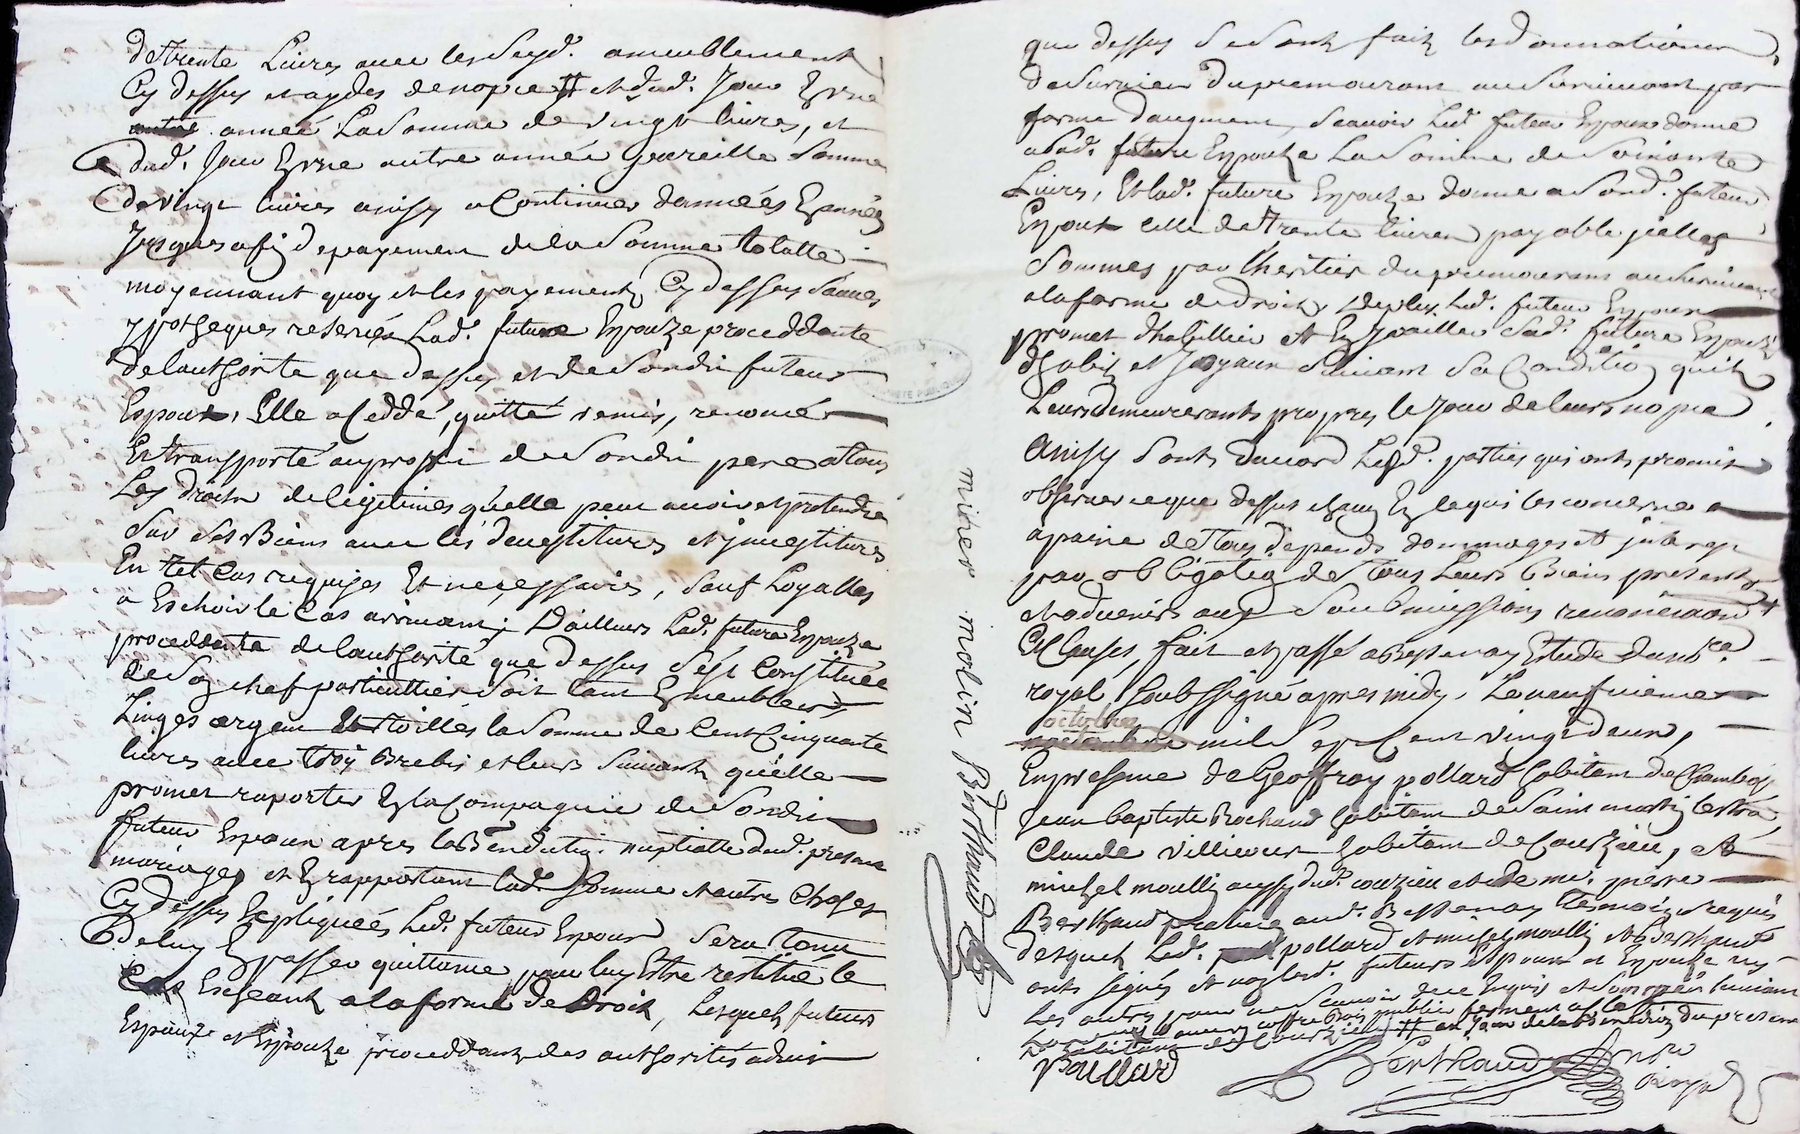 de trente Livres avec les susd. ameublement
Cy dessus et aydes de nopce # et dud. Jour En une
année La Somme de vingt livres, et
dud. Jour En une autre année pareille Somme
de vingt livres ainsy a Continuer d'années En années
Jusques a fin de payement de la Somme totalle
moyennant quoy et les payements Cy dessus Sauves
ypotheques reservés Lad. future Espouze proceddante
de lauthorite que dessus et de Sondit futeur
Espoux, Elle a Ceddé, quitté remis, renoncé
Et transporté au proffit de Sondit pere a tous
Les droits de legitimes quelle peut avoir et pretendre
Sur Ses Biens avec les devestitures et investitures
En tel Cas requises Et necessaires, Sauf Loyalles
a Eschoir le Cas arrivant; D'ailleurs Lad. future Espouze
proceddante de lauthorité que dessus s'est Constituée
de Son chef particullier Soit tant En meubles
Linges argent Et toilles la Somme de Cent Cinquante
livres avec troy Brebis et leurs Suivants quelle
promet raporter En la Compagnie de Sondit
futeur Espoux apres la Benediction nuptialle dud. present
mariage, et En rapportant lad. Somme et autres Choses
Cy dessus Expliqueés Led. futeur Espoux Sera tenu
de luy En passer quittance pour luy Estre restitué le
Cas Escheant a la forme de Droit, Lesquels futeurs
Espoux et Espouze proceddants des authorités admis
que dessus Se Sont faits les donnations
de Survie du premourant au Survivant par
forme daugment, Scavoir Led. futeur Espoux donne
a Lad. future Espouze La Somme de Soixante
Livres, Et lad. future Espouze donne a Sond. futeur
Espoux celle de trente livres payable icelles
Sommes par lheritier du premourant au Survivant
a la forme de droit, de plus Led. futeur Espoux
promet dhabillier Et En Joailler Lad. future Espouze
dhabits et Joyaux Suivant Sa Condition qu'ils
Leurs demeureronts propres le Jour de leurs nopce
Ainsy Sonts d'accord Lesd. parties qui onts promis
observer ce que dessus chacun En ce qui les concerne
a paine de tous depends dommages et interest
par obligation de tous Leurs Biens presents
et advenirs aux Soubmissions renonciations
Et Clauses, fait et passé a Bessenay Estude du no.re
royal Soubssigné apres midy, Le neufvieme
octobre
mil Sept Cent vingt deux,
En presence de Geoffray pollard habitant de Chambost
Jean baptiste Rochand habitant de Saint martin lestra,
Claude Villieur habitant de Courzieu, Et
michel moullin aussy dud. courzieu et de me. pierre
Berthaud praticien aud. Bessenay tesmoins requis
desquels Led. pollard et michel moullin et Berthaud
onts signés et non lesd. futeurs Espoux et Espouze ny
Les autres pour ne Scavoir de ce Enquis et Sommés suivant
Pollard
Berthaud no.re Royal
miher molin Berthaud